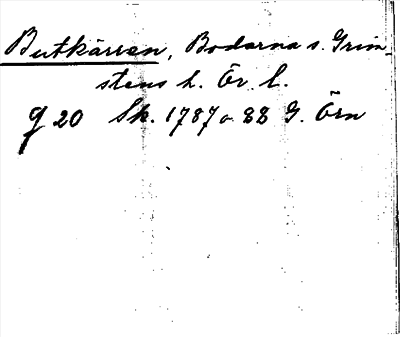 Butkärren, Bodarna s. Grim-
stens h. Ör. l.
g 20 Sk. 1787 o 88 G. Örn